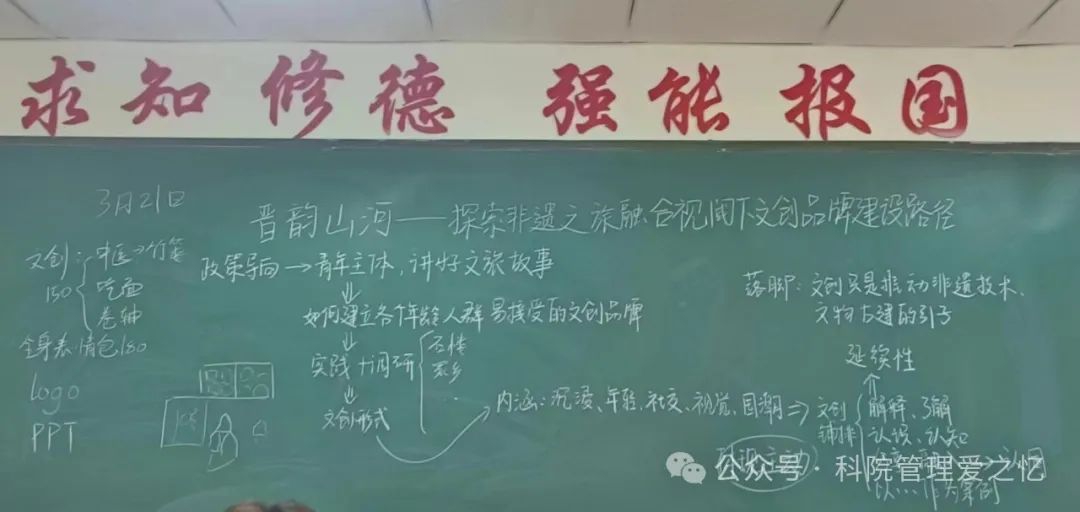 求知修德 强能报国
3月21日
晋韵山河——探索非遗文旅融合视阈下文创品牌建设路径
文创:
150
中医→竹笺
吃面
卷轴
全身表情包180
logo
PPT
政策导向→青年主体,讲好文旅故事
如何建立各个年龄人群易接受的文创品牌
实践+调研
文创形式
内涵:沉浸、年轻、社交、视觉、国潮⇒文创
铺排
落脚:文创只是推动非遗技术、
文物古建的引子
延续性
解释、了解
认识、认知
公众号·科院管理爱之忆